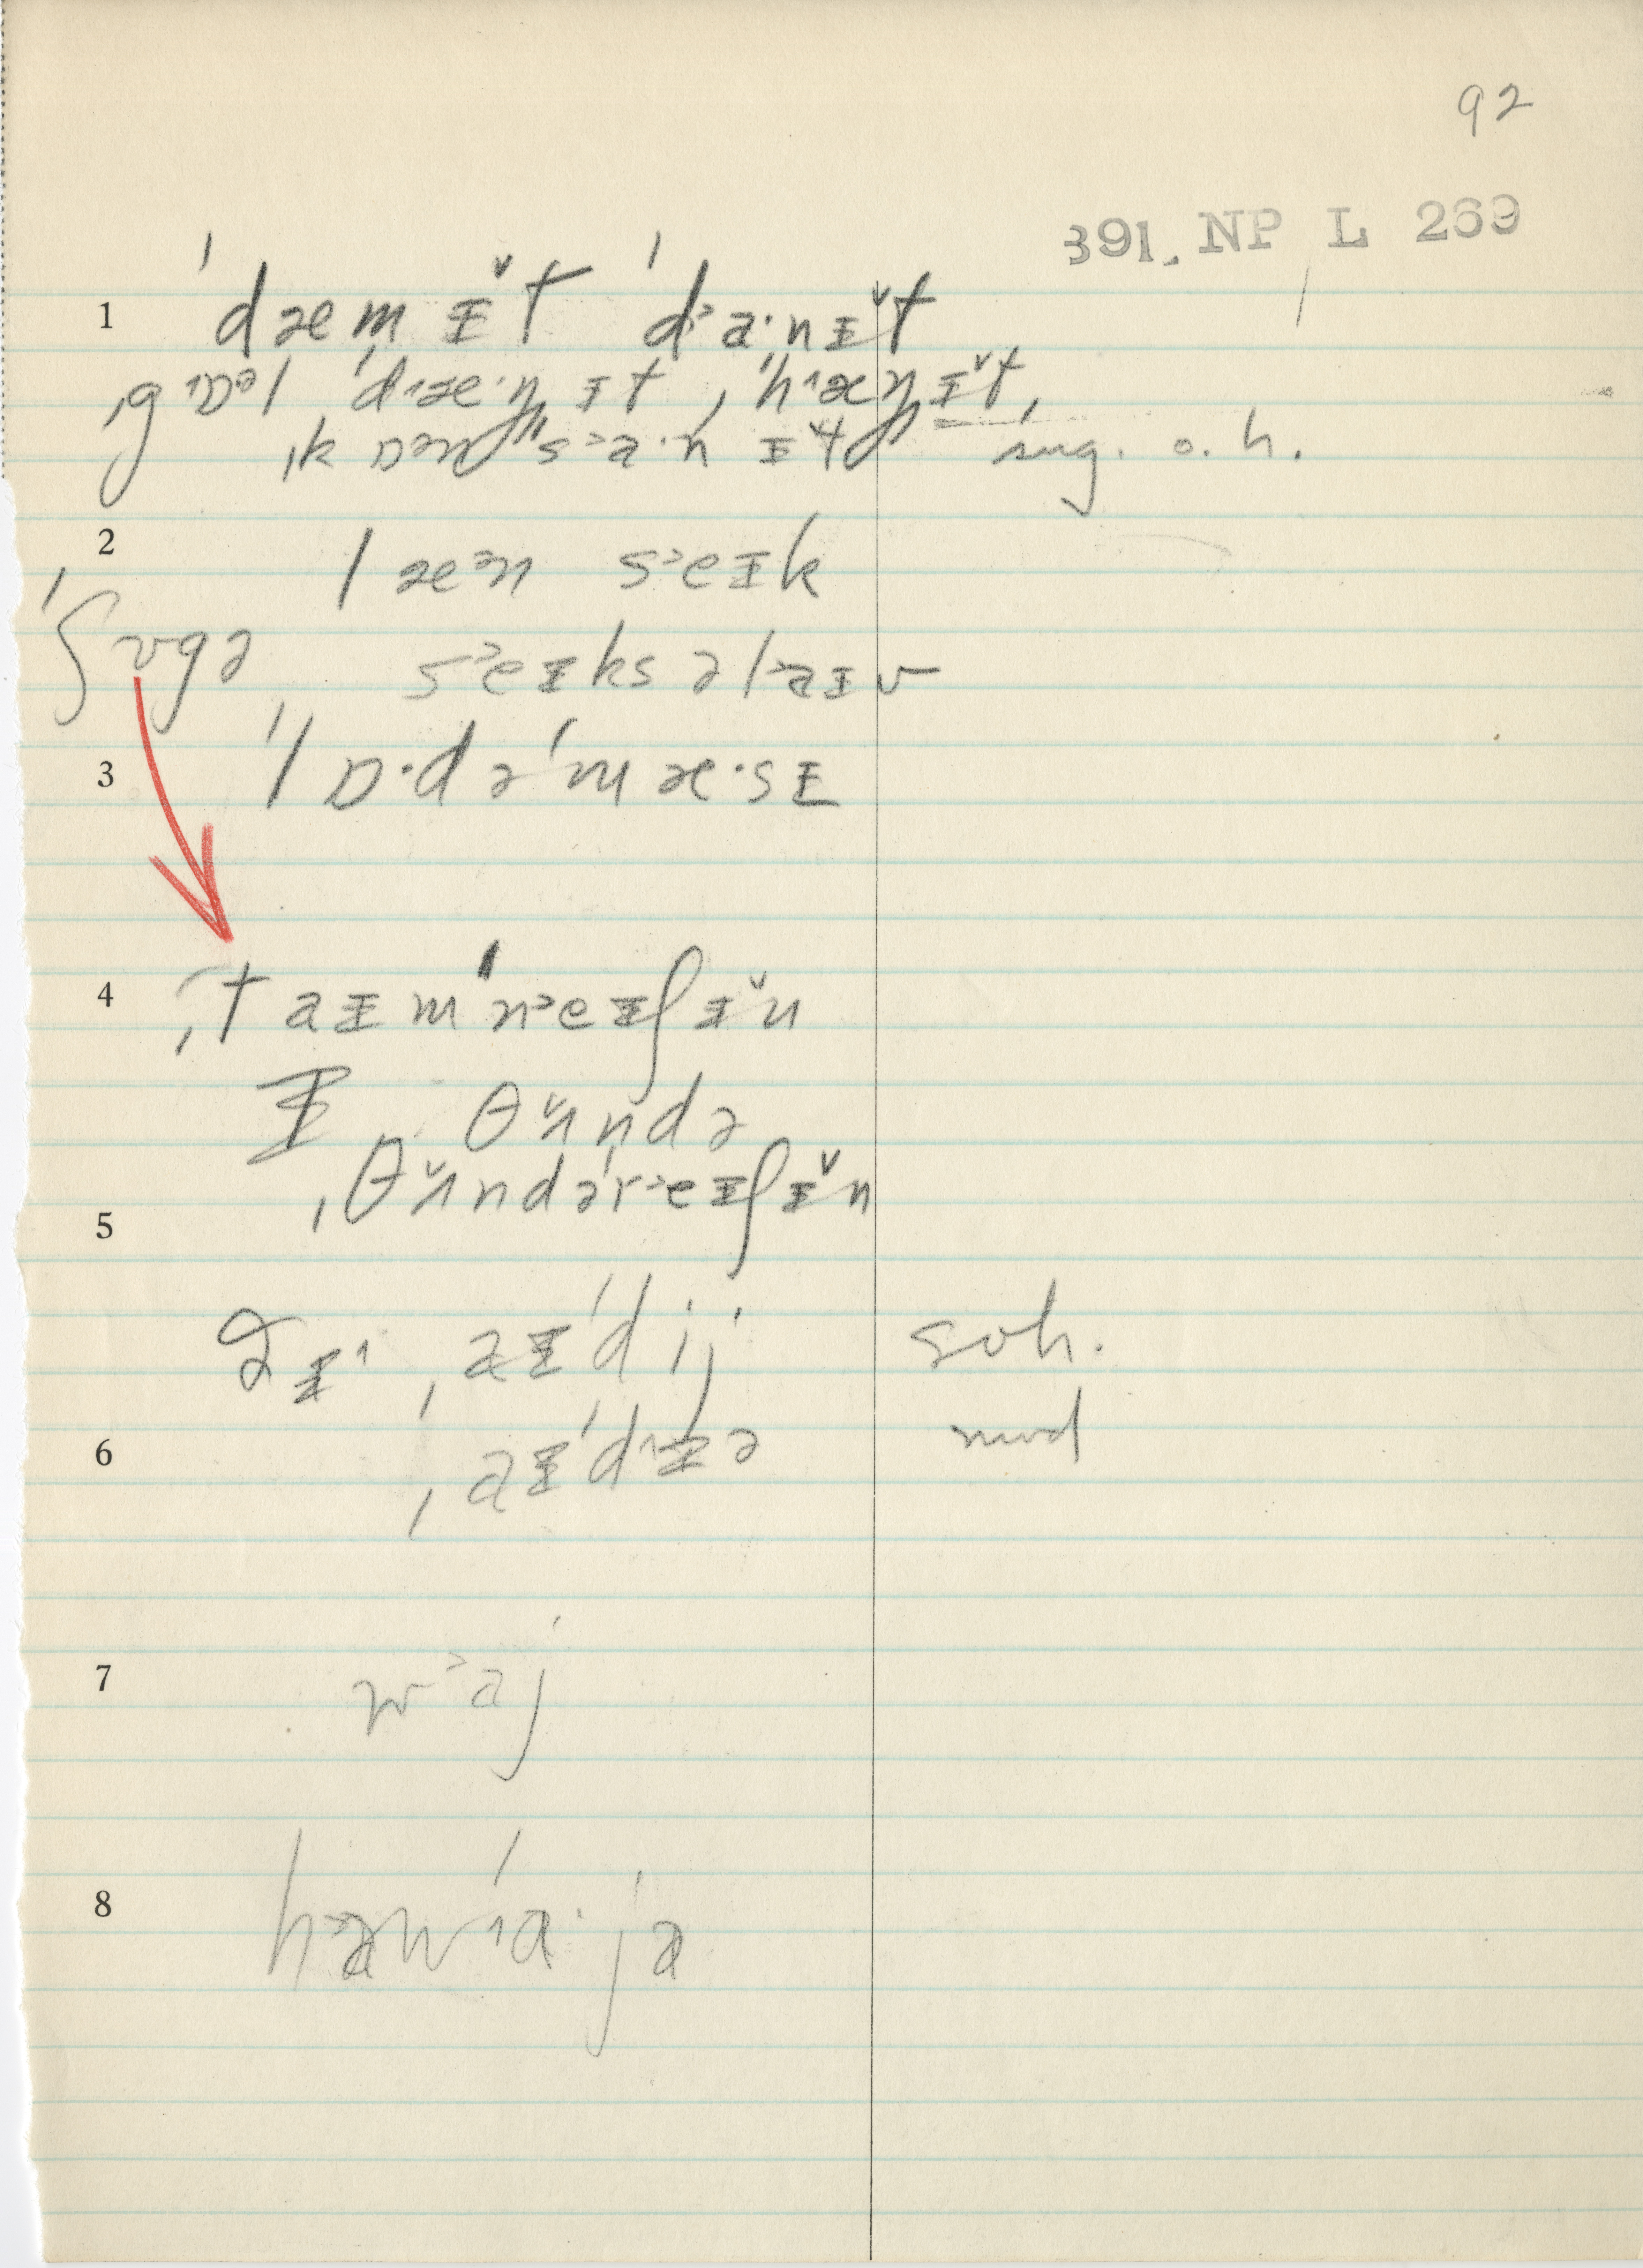 92
391. NP L 269
1 ˈdæmɪ̌t ˈd˃a·nɪ̌t
ˌgˈɒᵊl ˈd˄æ·ŋɪt, ˈh˄æŋɪ̌t,
ˌkɒ˃nˈs˃a·nɪ̌t sug. o. h.
2 læ˃n s˃eɪk
ˈʃʊgə s˃eɪksəl˃aɪv
3 ˈlɒ·dəˈmæ·sɪ
4 ˌtaɪmˈn˃eɪʃɪ̌n
ɪ θʌ̌ndə
5 ˌθʌ̌ndəˈr˃eɪʃɪ̌n
ˌaɪˈdij soh.
6 ˌaɪˈd˄ɪə mod
7 w˃aj
8 h˃awˈ˄a·ja